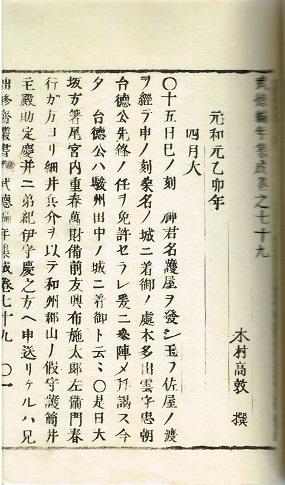 武徳編年集成巻之七十九
木村高敦 撰
元和元乙卯年
四月大
〇十五日巳ノ刻 神君名護屋ヲ發シ玉フ佐屋ノ渡
ヲ經テ申ノ刻桑名ノ城ニ着御ノ處本多出雲守忠朝
台德公先鋒ノ任ヲ免許セラレ爰ニ參陣メ拜謁ス今
夕 台德公ハ駿州田中ノ城ニ着御ト云〻〇是日大
坂方箸尾宮内重春萬財備前友興布施太郎左衞門春
行カ方ヨリ細井兵介ヲ以テ和州郡山ノ假守護筒井
主殿助定慶并ニ弟紀伊守慶之方ヘ申送リケルハ兄
武德編年集成卷七十九 〇一